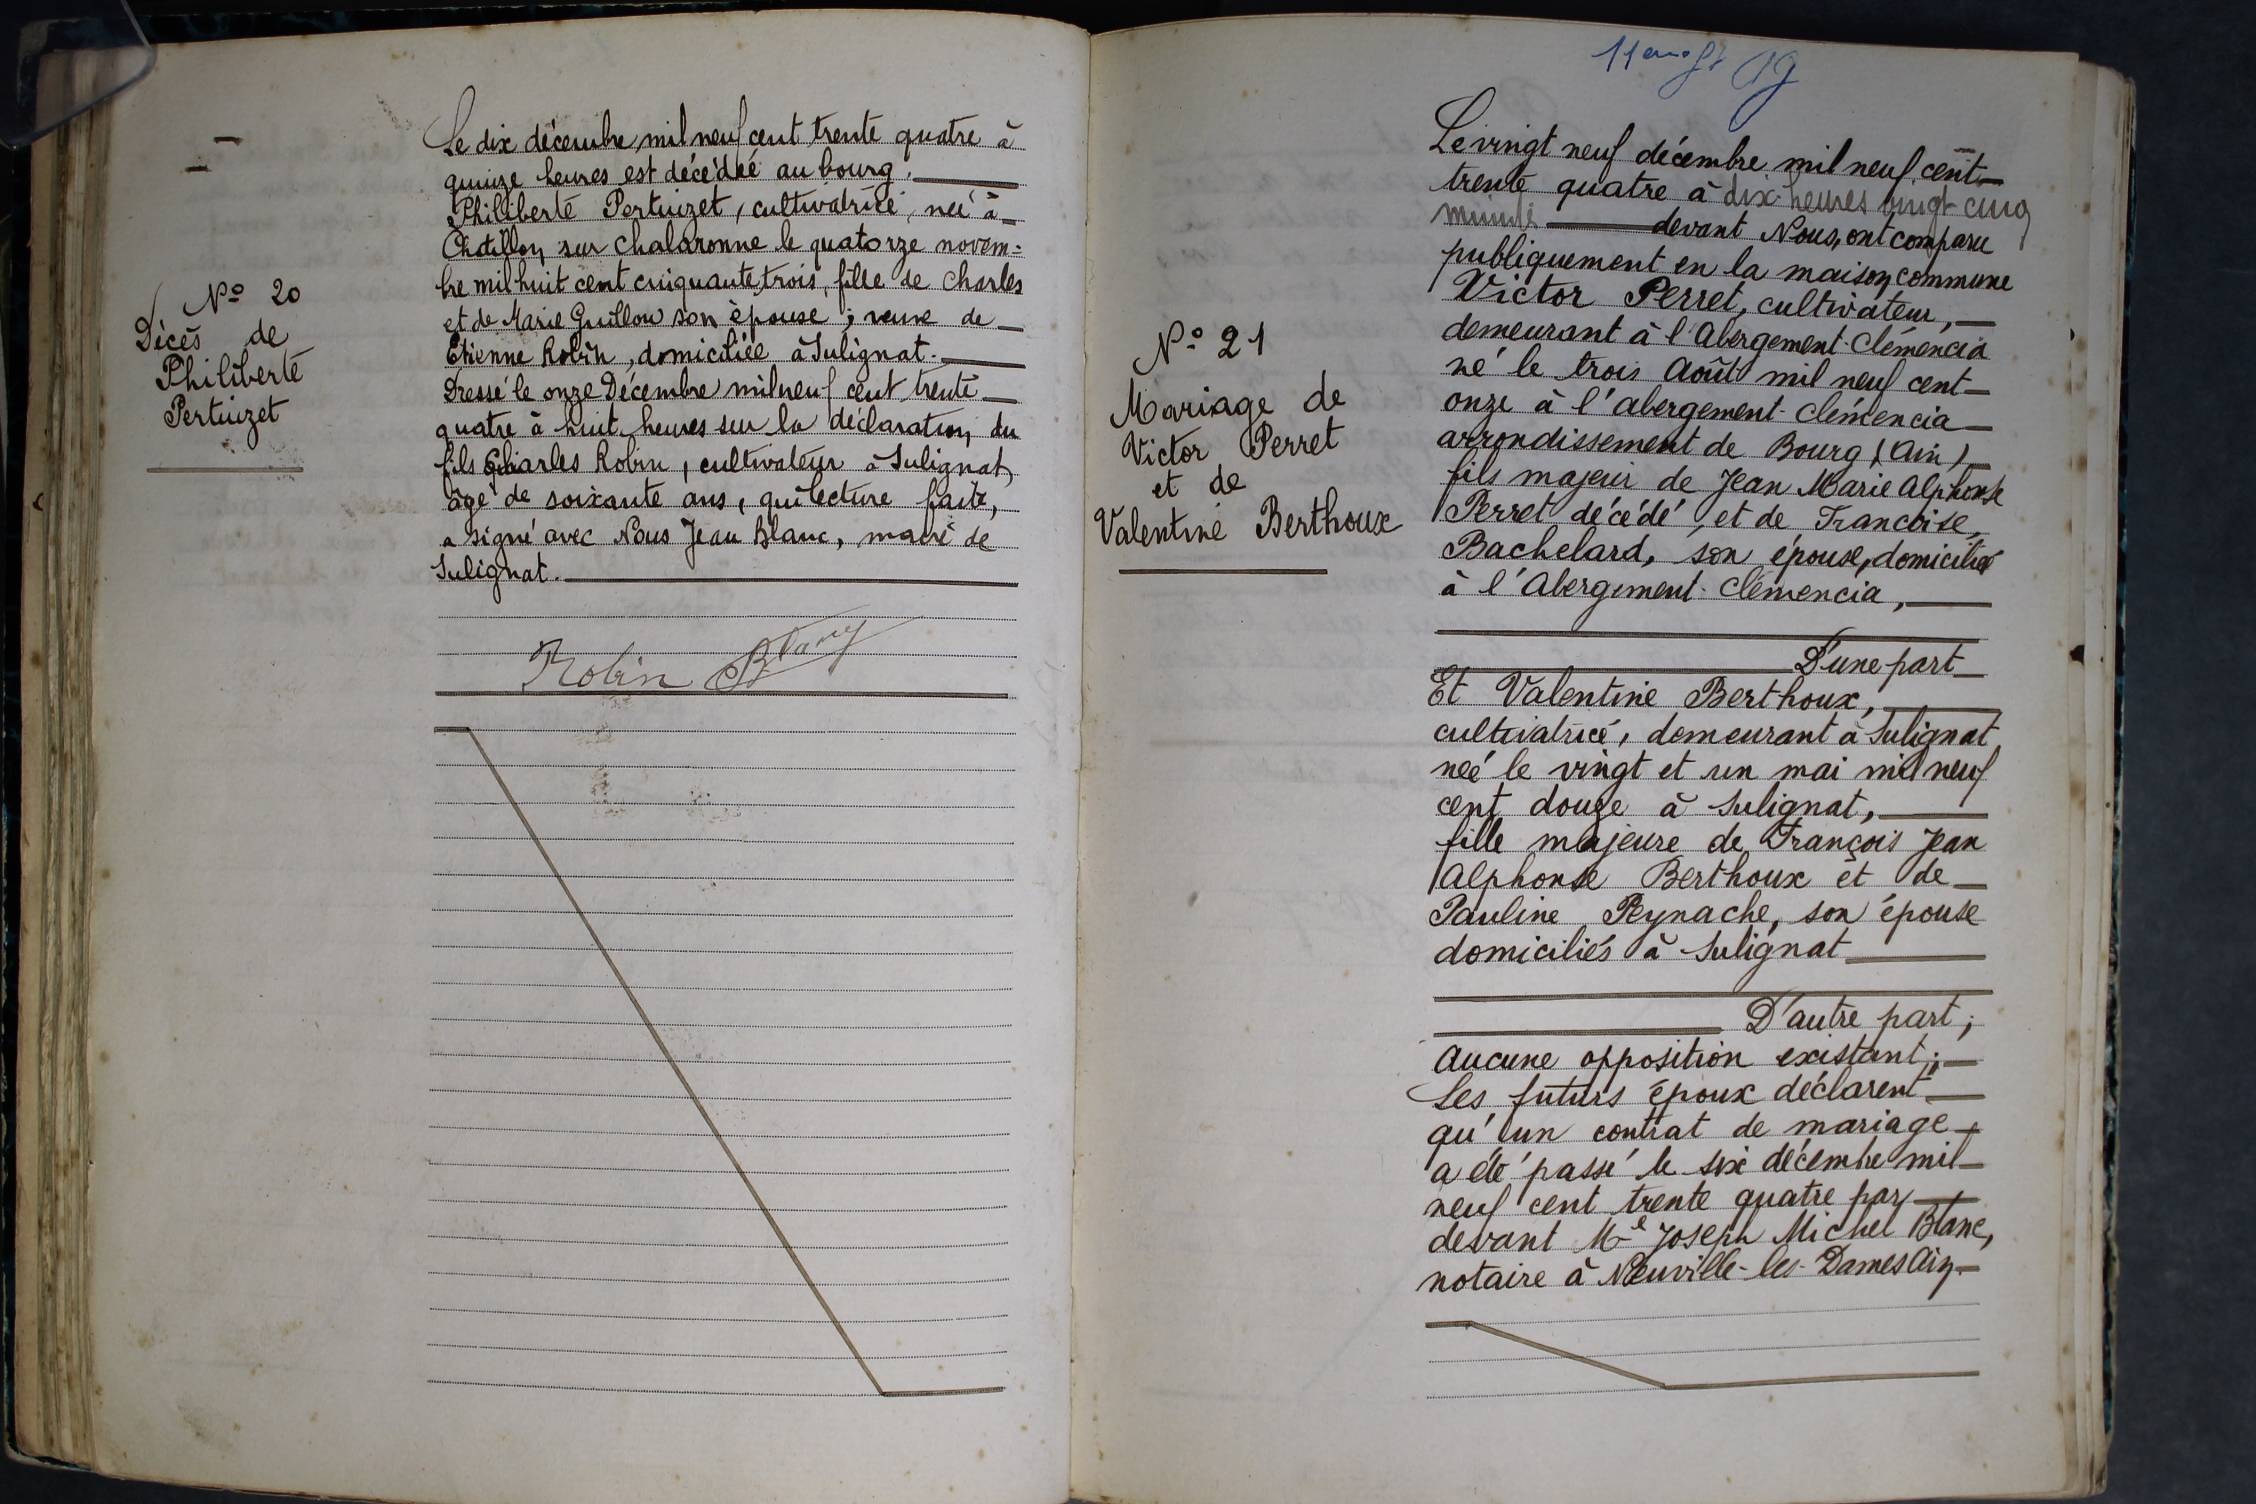 Nº 20
Décès de
Philiberte
Pertuizet
Le dix décembre mil neuf cent trente quatre à
quinze heures est décédée au bourg.
Philiberte Pertuizet, cultivatrice, née à
Châtillon sur Chalaronne le quatorze novem=
bre mil huit cent cinquante trois, fille de Charles
et de Marie Guillon son épouse ; veuve de
Etienne Robin, domiciliée à Sulignat.
Dressé le onze Décembre mil neuf cent trente
quatre à huit heures sur la déclaration du
fils Charles Robin, cultivateur à Sulignat,
âgé de soixante ans, qui lecture faite,
a signé avec Nous Jean Blanc, maire de
Sulignat.
Robin Blanc
19
Nº 21
Mariage de
Victor Perret
et de
Valentine Berthoux
Le vingt neuf décembre mil neuf cent
trente quatre à dix heures vingt cinq
minutes devant Nous, ont comparu
publiquement en la maison commune
Victor Perret, cultivateur,
demeurant à l'Abergement-Clémencia
né le trois Août mil neuf cent
onze à l'Abergement-Clémencia
arrondissement de Bourg (Ain)
fils majeur de Jean Marie Alphonse
Perret décédé, et de Francoise,
Bachelard, son épouse, domiciliée
à l'Abergement-Clémencia,
D'une part
Et Valentine Berthoux,
cultivatrice, demeurant à Sulignat
née le vingt et un mai mil neuf
cent douze à Sulignat,
fille majeure de François Jean
Alphonse Berthoux et de
Pauline Peynache, son épouse
domiciliés à Sulignat
D'autre part ;
Aucune opposition existant ;
Les futurs époux déclarent
qu'un contrat de mariage
a été passé le six décembre mil
neuf cent trente quatre par
devant Me Joseph Michel Blanc,
notaire à Neuville-les-Dames Ain